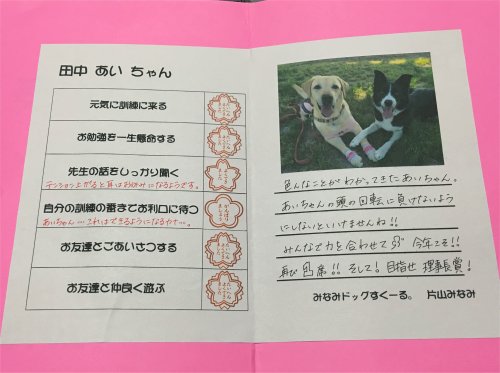 田中 あい ちゃん
元気に訓練に来る
お勉強を一生懸命する
先生の話をしっかり聞く
テンション上がると耳はお休みになるようです。
自分の訓練の番までお利口に待つ
あいちゃん…これはできるようになろやで…。
お友達とごあいさつする
お友達と仲良く遊ぶ
色んなことがわかってきたあいちゃん。
あいちゃんの頭の回転に負けないよう
にしないといけませんね!!
みんなで力を合わせて 今年こそ!!
再び 席!! そして! 目指せ 理事長賞!
みなみドッグすくーる。 片山みなみ